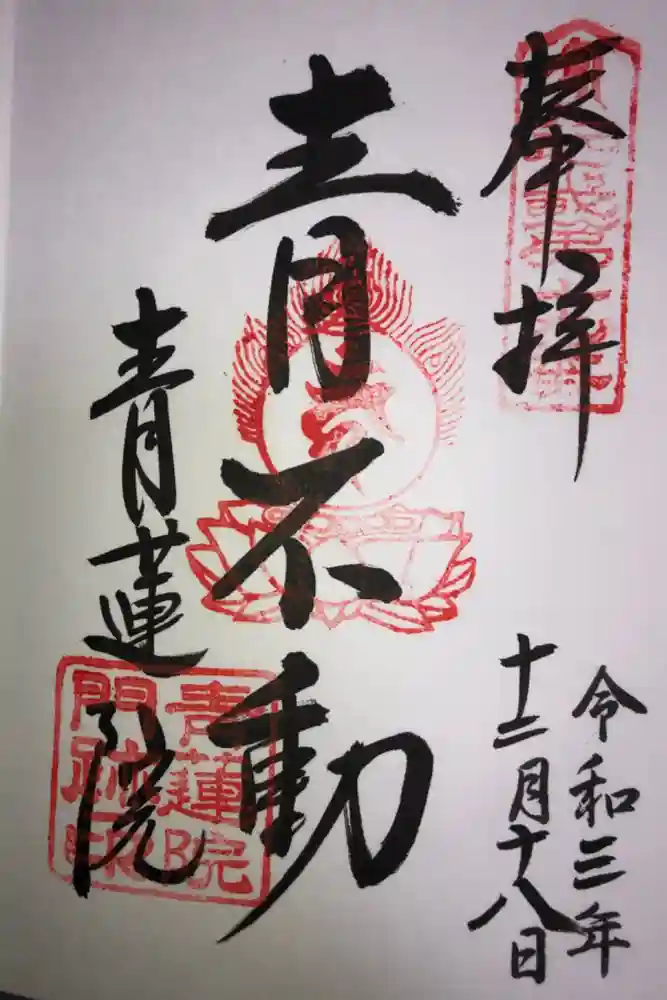 奉拝
令和三年
十二月十八日
青不動
青蓮院
青蓮院
門跡印